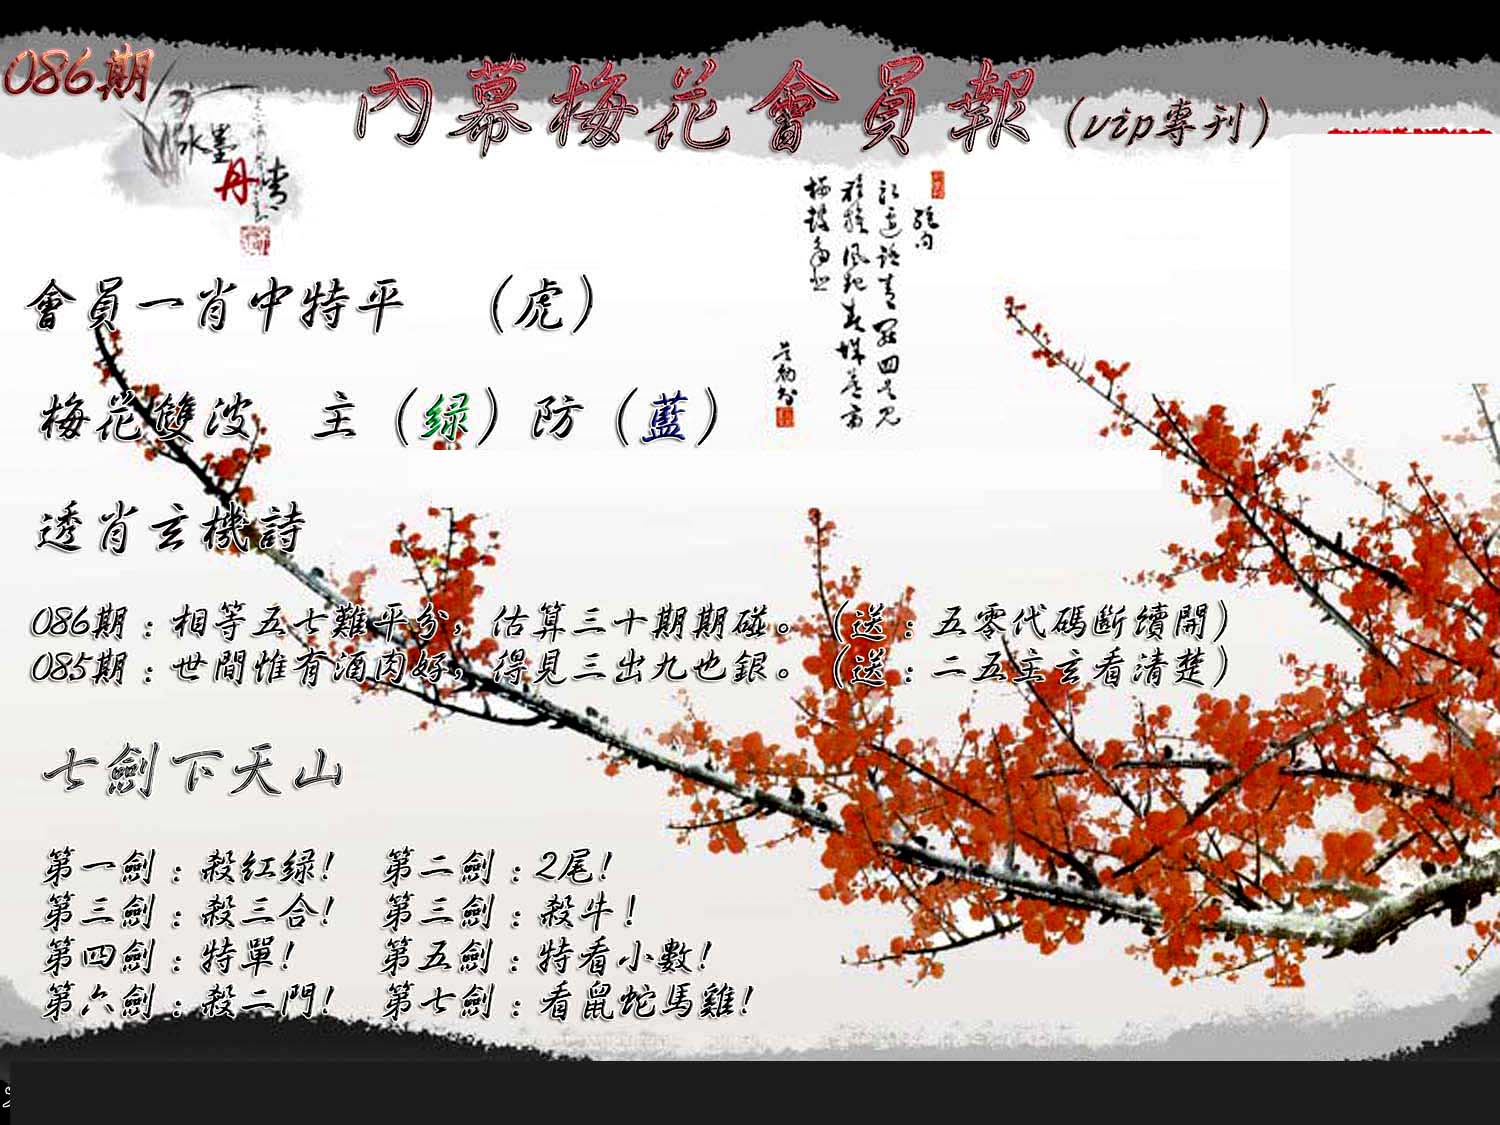 086期
內幕梅花會員報（vip專刊）
水墨
丹青
絕句
會員一肖中特平　（虎）
梅花雙波　主（绿）防（藍）
透肖玄機詩
086期：相等五七難平分，估算三十期期碰。（送：五零代碼斷續開）
085期：世間惟有酒肉好，得見三出九也銀。（送：二五主玄看清楚）
七劍下天山
第一劍：殺紅绿！　第二劍：2尾！
第三劍：殺三合！　第三劍：殺牛！
第四劍：特單！　第五劍：特看小數！
第六劍：殺二門！　第七劍：看鼠蛇馬雞！